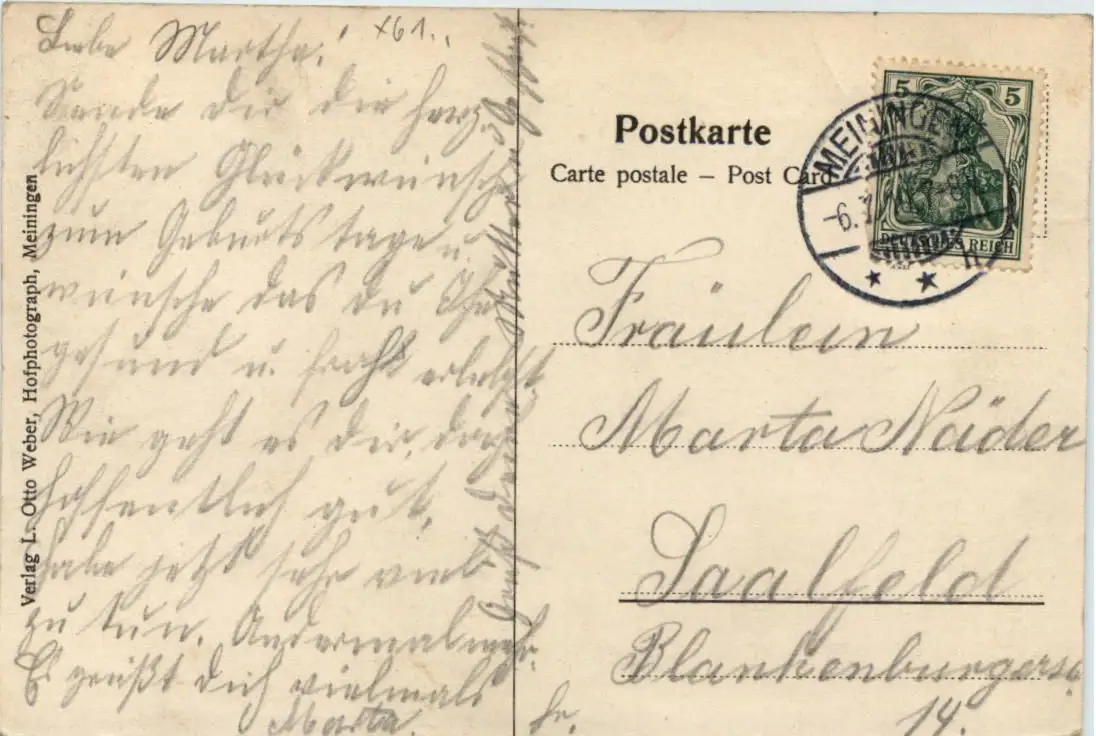 Liebe Martha! x61..
Sende dir die herz-
lichsten Glückwünsche
zum Geburtstage u.
wünsche das du Ihn
gesund u. froh verlebst.
Wie geht es dir, doch
hoffentlich gut.
habe jetzt sehr viel
zu tun. Andermal mehr.
Es grüßt dich vielmals
Marta.
Verlag L. Otto Weber, Hofphotograph, Meiningen
Postkarte
Carte postale – Post Card
5 5
MEININGEN
6.
DEUTSCHES REICH
Fräulein
Marta Näder
Saalfeld
Blankenburgerst
14.